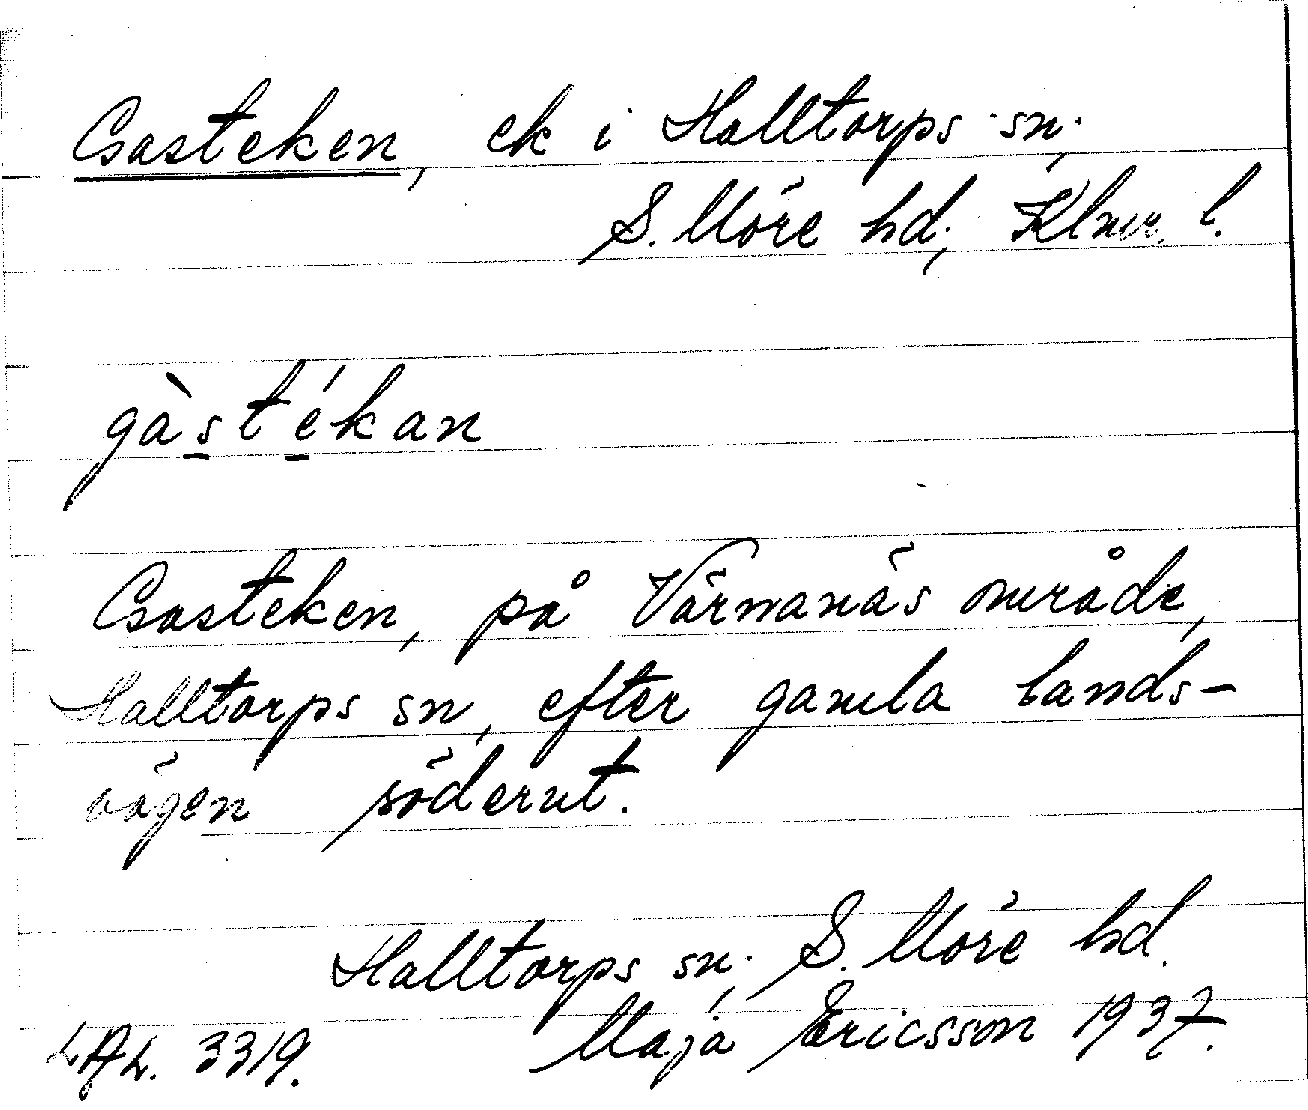 Gasteken, ek i Halltorps sn;
S. Möre hd; Klmr. l.
gàstékan
Gasteken, på Värnanäs område,
Halltorps sn, efter gamla lands-
vägen söderut.
Halltorps sn; S. Möre hd.
LAL. 3319. Maja Ericsson 1937.